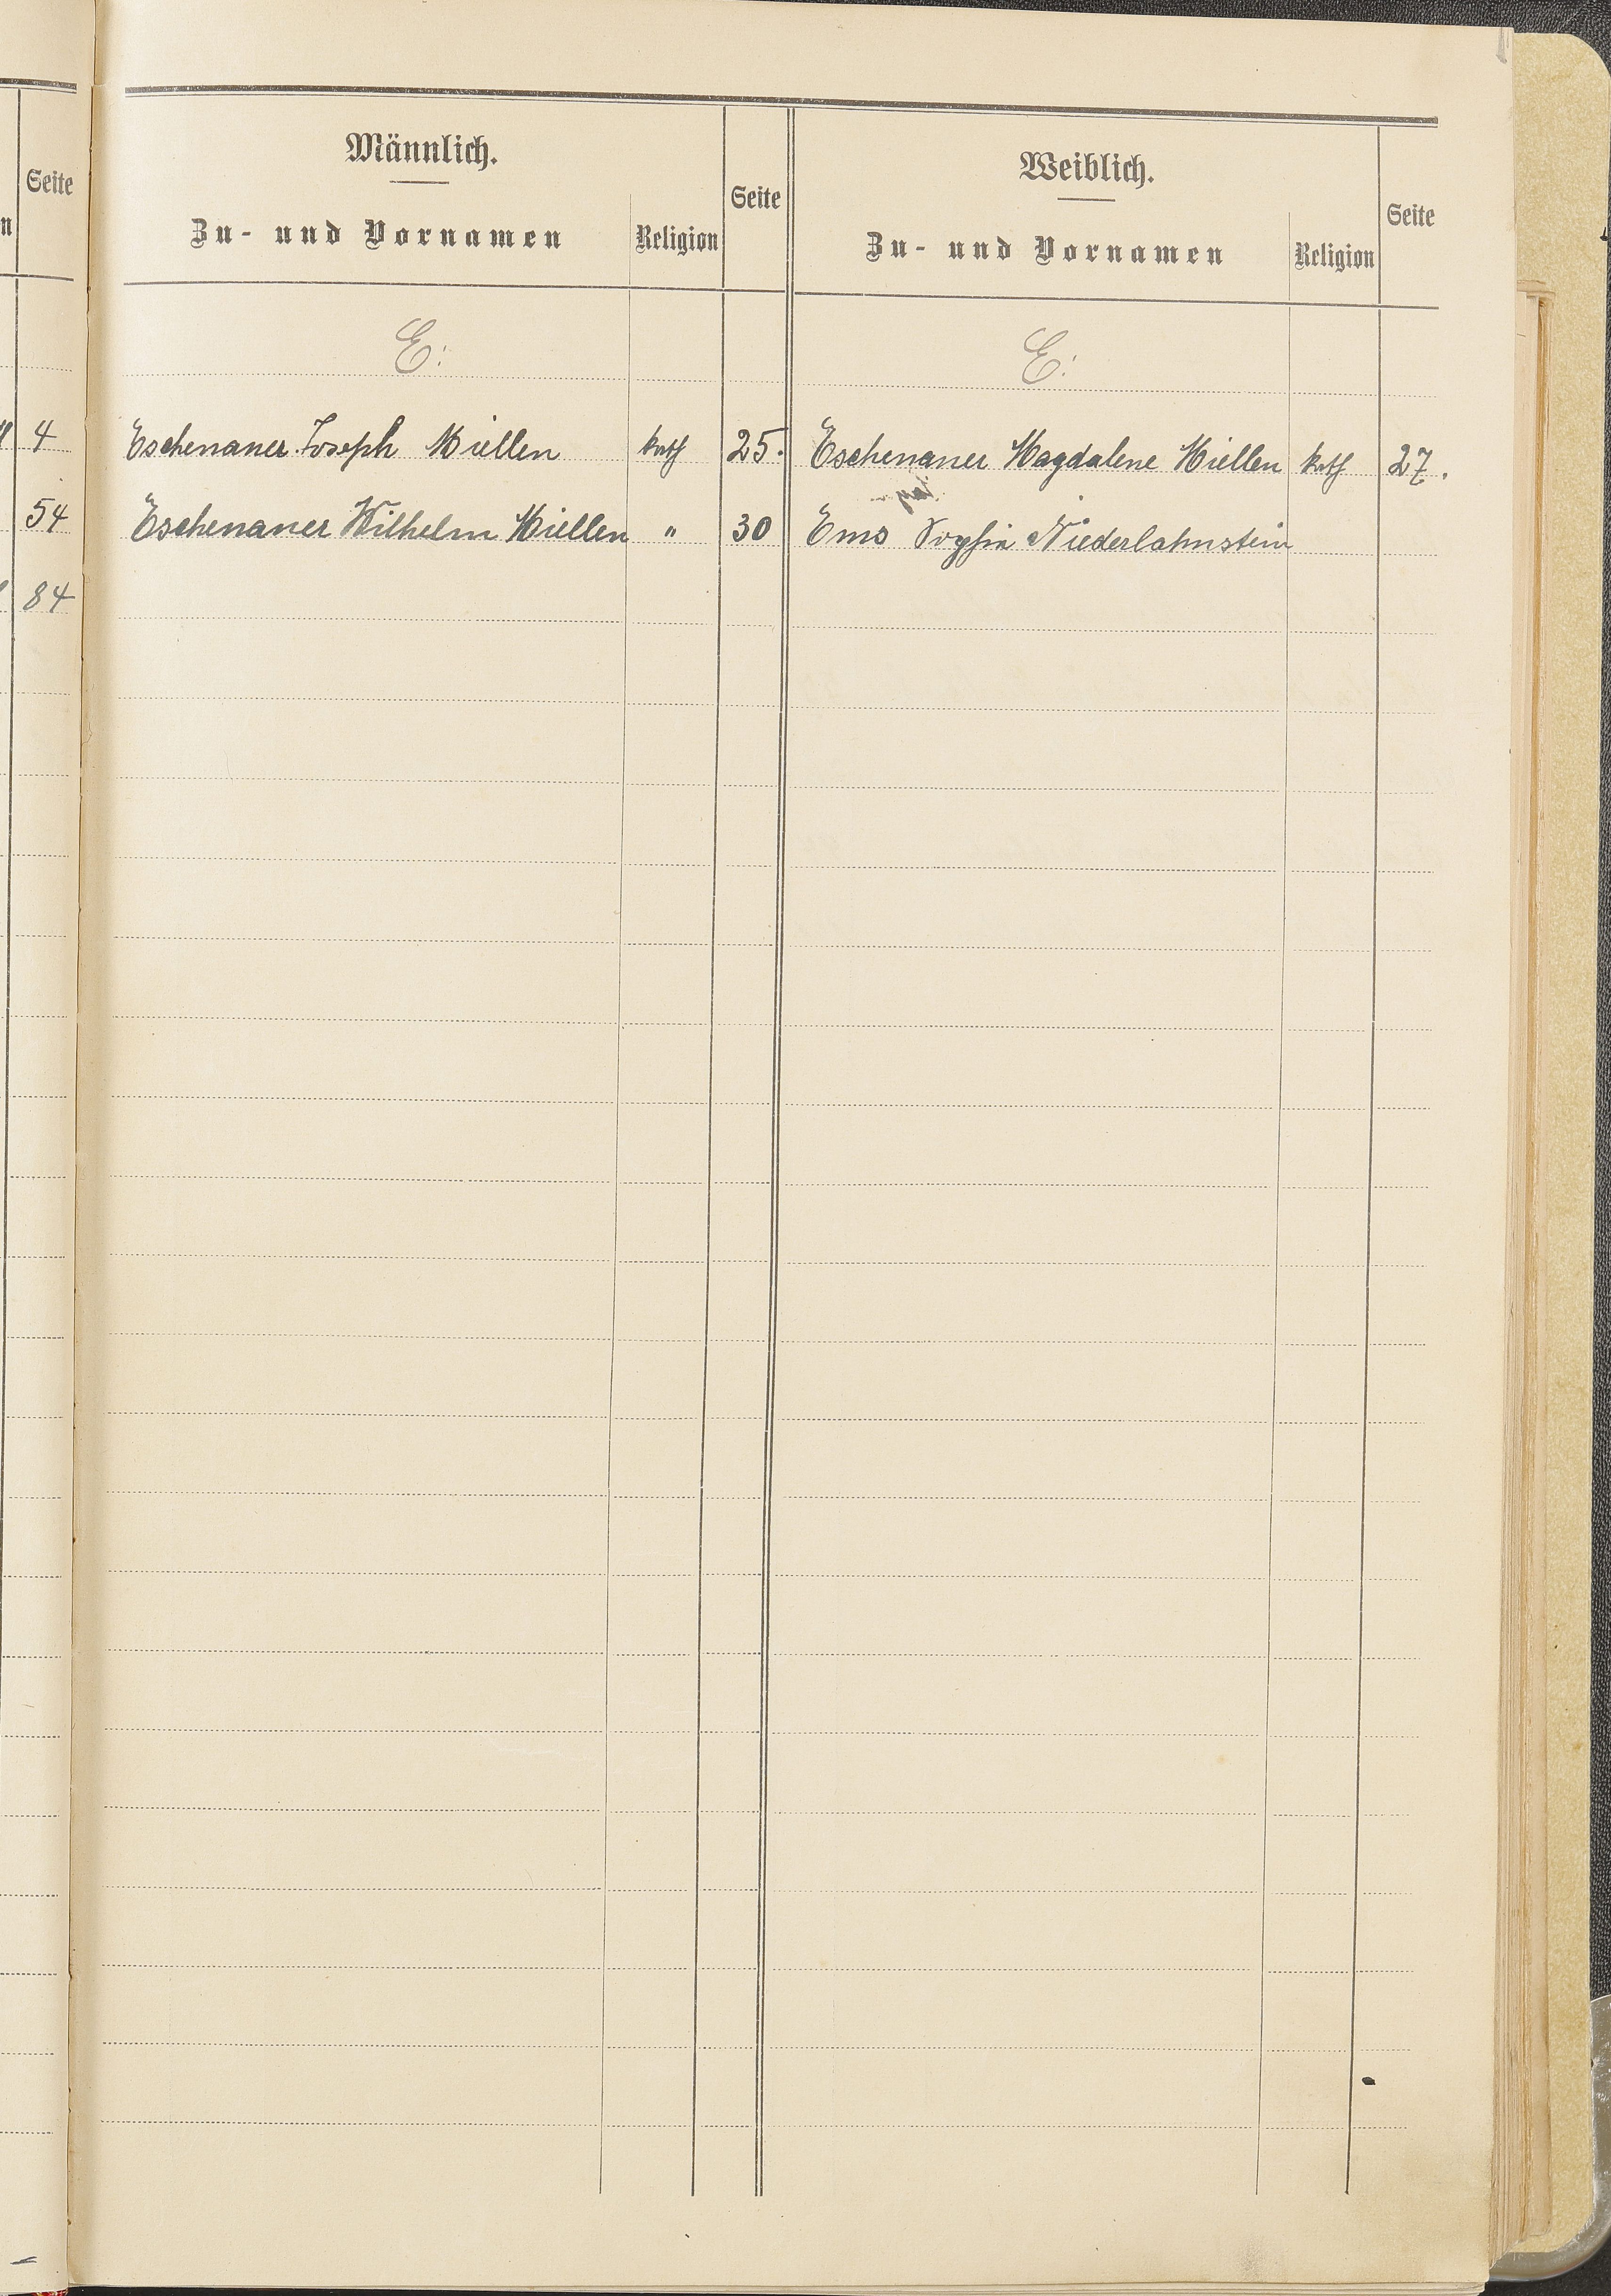 Seite
n
4
54
84
Männlich.
Zu- und Vornamen
Religion
Seite
E:
Eschenauer Joseph Miellen kath 25.
Eschenauer Wilhelm Miellen " 30
Weiblich.
Zu- und Vornamen
Religion
Seite
E:
Eschenauer Magdalene Miellen kath 27.
Ems Sophia Niederlahnstein